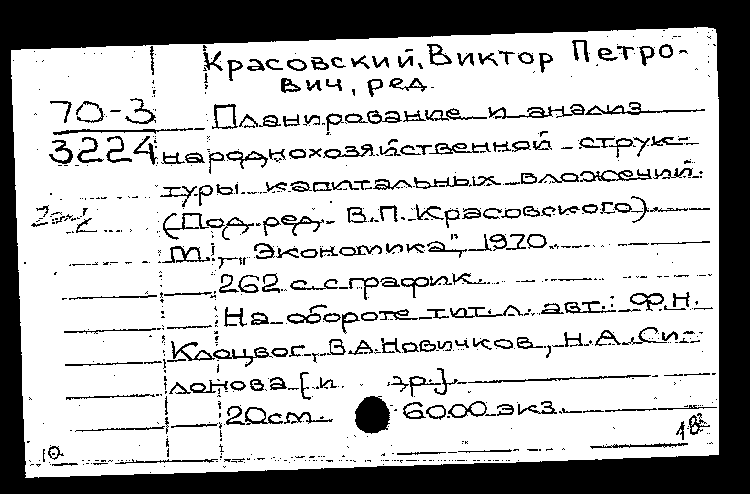 Красовский, Виктор Петро-
вич, ред.
70-3
3224
Планирование и анализ
народнохозяйственной струк-
туры капитальных вложений.
(Под ред. В.П. Красовского).
М., „Экономика", 1970.
262 с. с график.
На обороте тит. л. авт.: Ф.Н.
Клоцвог, В.А. Новичков, Н.А. Си-
лонова [и др.].
20см. 6000 экз.
10